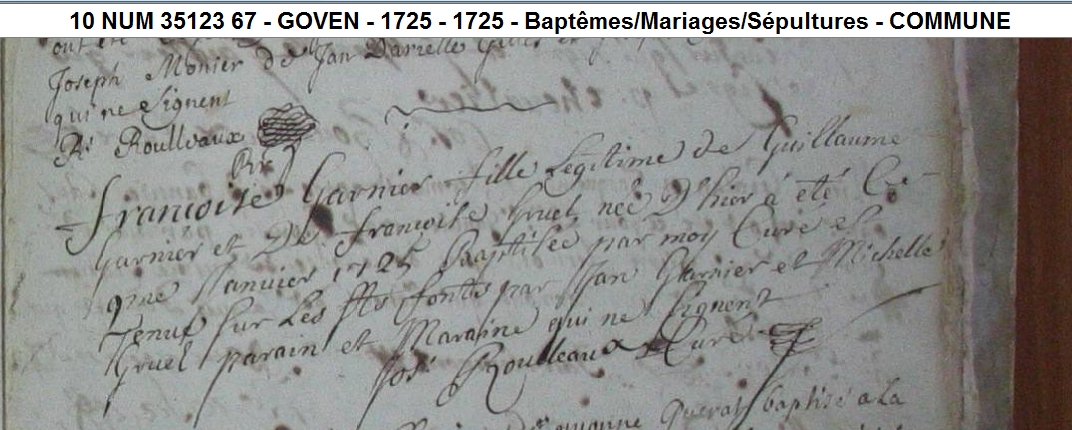 10 NUM 35123 67 - GOVEN - 1725 - 1725 - Baptêmes/Mariages/Sépultures - COMMUNE
ont été
Joseph Monier de Jan Darzelle Gilles
qui ne signent
Roulleaux
Françoise Garnier fille Légitime de Guillaume
Garnier et De Françoise Gruel née D'hier à été Ce
9me Janvier 1725 Baptisée par moy Curé et
Tenue sur Les fts fonts par Jan Garnier et Michelle
Gruel parain et Maraine qui ne signent
Jos Roulleaux Curé
baptisé a La